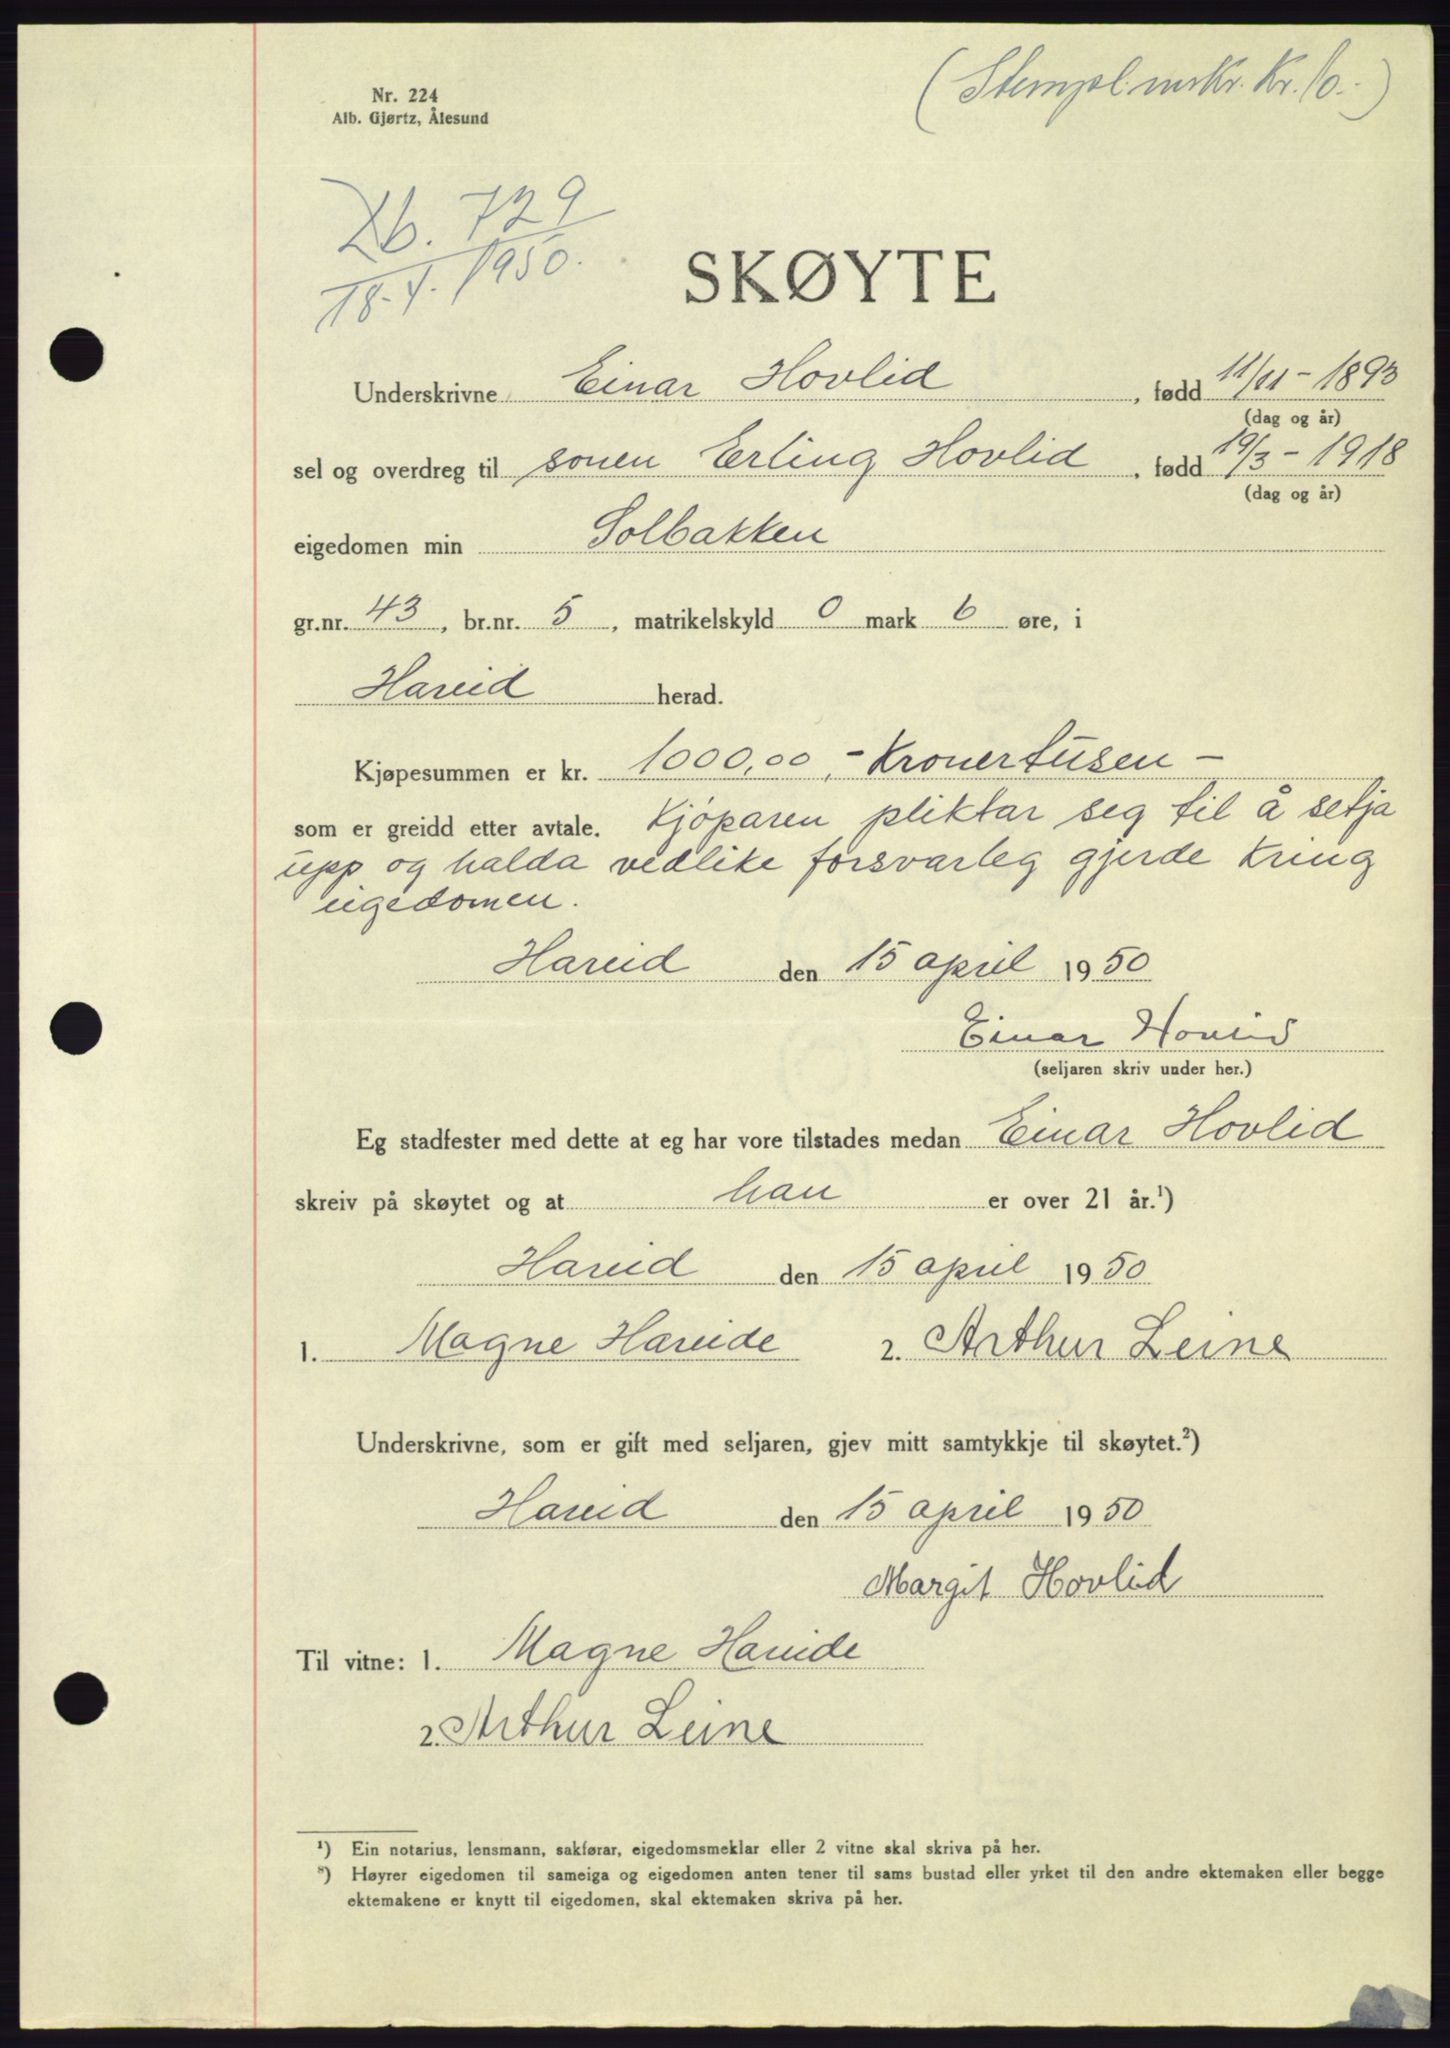 (Stempel.mrkr. Kr. 10.-)
Nr. 224
Alb. Gjørtz, Ålesund
Db. 729
18.4.1950.
SKØYTE
Underskrivne Einar Hovlid, fødd 11/11-1893
(dag og år)
sel og overdreg til sonen Erling Hovlid, fødd 19/3-1918
(dag og år)
eigedomen min Solbakken
gr.nr. 43, br.nr. 5, matrikelskyld 0 mark 6 øre, i
Hareid herad.
Kjøpesummen er kr. 1000,00,- Kronertusen -
som er greidd etter avtale. Kjøparen pliktar seg til å setja
upp og halda vedlike forsvarleg gjerde kring
eigedomen.
Hareid den 15 april 1950
Einar Hovlid
(seljaren skriv under her.)
Eg stadfester med dette at eg har vore tilstades medan Einar Hovlid
skreiv på skøytet og at han er over 21 år.¹)
Hareid den 15 april 1950
1. Magne Hareide 2. Arthur Leine
Underskrivne, som er gift med seljaren, gjev mitt samtykkje til skøytet.²)
Hareid den 15 april 1950
Margit Hovlid
Til vitne: 1. Magne Hareide
2. Arthur Leine
¹) Ein notarius, lensmann, sakførar, eigedomsmeklar eller 2 vitne skal skriva på her.
²) Høyrer eigedomen til sameiga og eigedomen anten tener til sams bustad eller yrket til den andre ektemaken eller begge
ektemakene er knytt til eigedomen, skal ektemaken skriva på her.